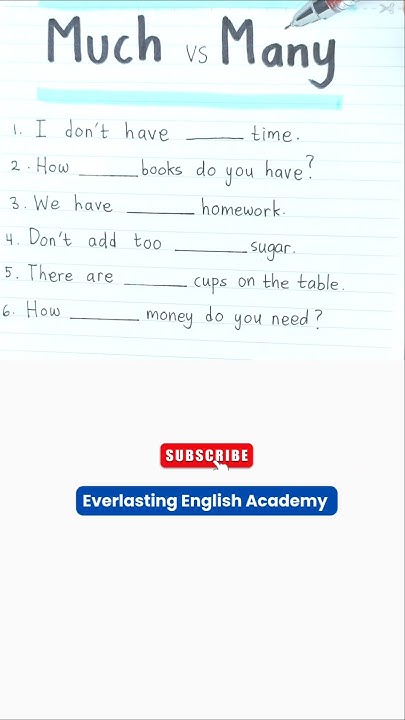 Much vs Many
1. I don't have ______ time.
2. How ______ books do you have?
3. We have ______ homework.
4. Don't add too ______ sugar.
5. There are ______ cups on the table.
6. How ______ money do you need?
SUBSCRIBE
Everlasting English Academy